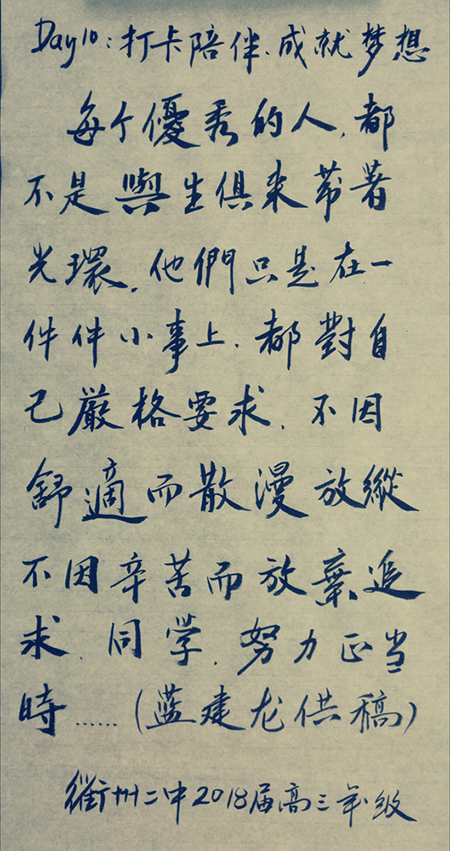 Day10:打卡陪伴、成就梦想
每个優秀的人,都
不是與生俱来帶著
光環,他們只是在一
件件小事上,都對自
己嚴格要求,不因
舒適而散漫放縱
不因辛苦而放棄追
求、同学,努力正当
時……(蓝建龙供稿)
衢州二中2018届高三年级